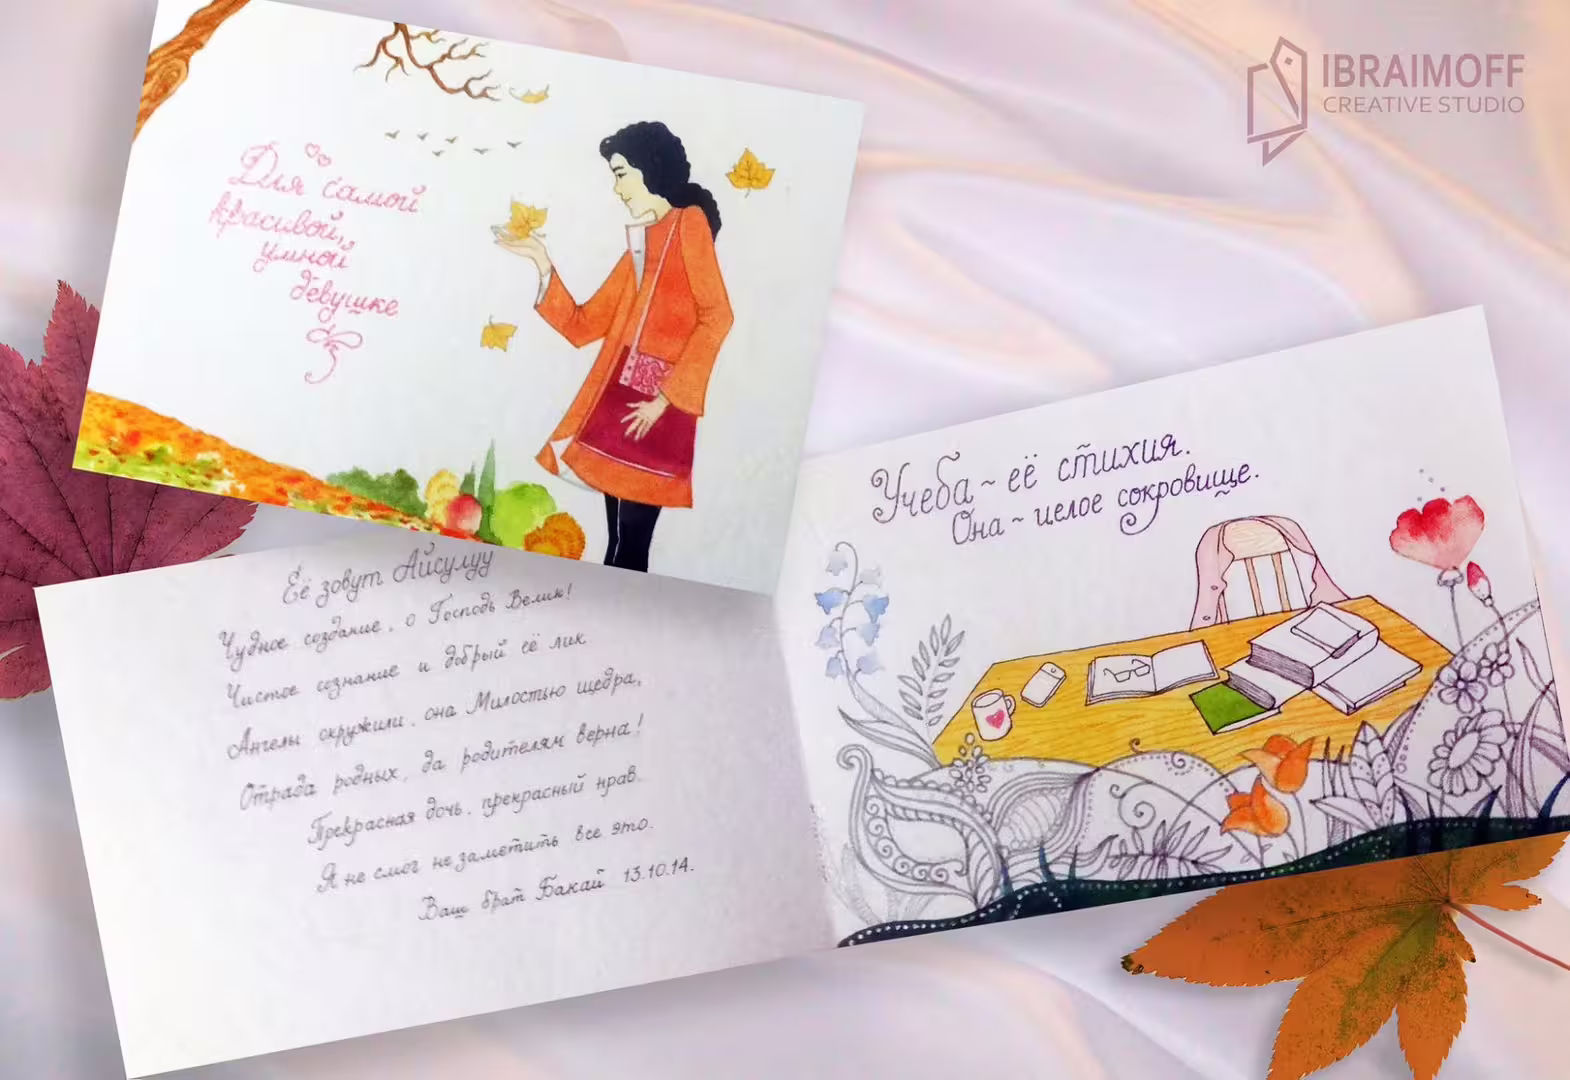 IBRAIMOFF
CREATIVE STUDIO
Для самой
красивой,
умной
девушке
Её зовут Айсулуу
Чудное создание, о Господь Велик!
Чистое сознание и добрый её лик
Ангелы окружили, она Милостью щедра,
Отрада родных, да родителям верна!
Прекрасная дочь, прекрасный нрав.
Я не смог не заметить все это.
Ваш брат Бакай 13.10.14.
Учеба ~ её стихия.
Она ~ целое сокровище.